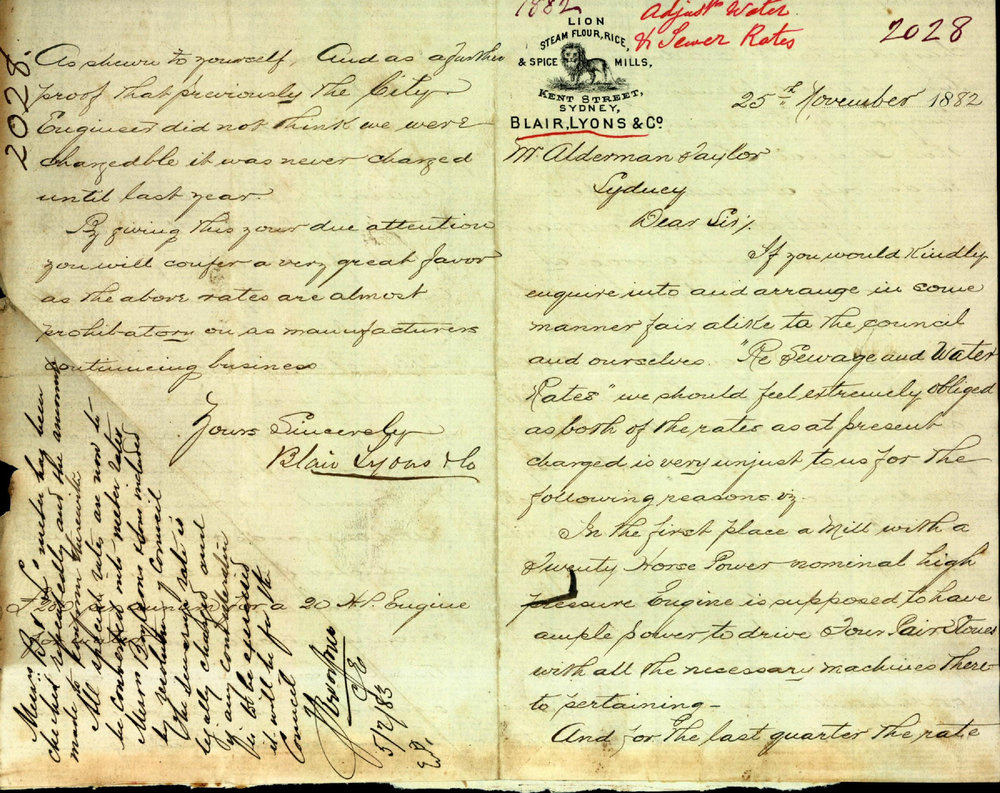 1882
Adjustm Water
& Sewer Rates
2028
LION
STEAM FLOUR, RICE,
& SPICE MILLS,
KENT STREET,
SYDNEY,
BLAIR, LYONS & Co
25th November 1882
Mr Alderman Taylor
Sydney
Dear Sir,
If you would kindly
enquire into and arrange in some
manner fair alike to the council
and ourselves. "Re Sewage and Water
Rates" we should feel extremely obliged
as both of the rates as at present
charged is very unjust to us for the
following reasons viz
In the first place a Mill with a
Twenty Horse Power nominal high
pressure Engine is supposed to have
ample power to drive Four Pair Stones
with all the necessary machines there-
to pertaining -
And for the last quarter the rate
2028.
As shewn to yourself. And as a further
proof that previously the City
Engineer did not think we were
chargedble it was never charged
until last year.
By giving this your due attention
you will confer a very great favor
as the above rates are almost
prohibatory on as manufacturers
continuing business
Yours Sincerely
Blair Lyons & Co
per annum for a 20 H.P. Engine
Messrs B L & Co's meter has been
checked repeatedly and the amount
made to conform therewith
All special rates are now to
be converted into meter rates
Messrs B Lyons & Cos included
by resolution of Council
The sewerage rate is
legally charged and
if any consideration
is to be exercised
it will be for the
Council
CE
5/2/83